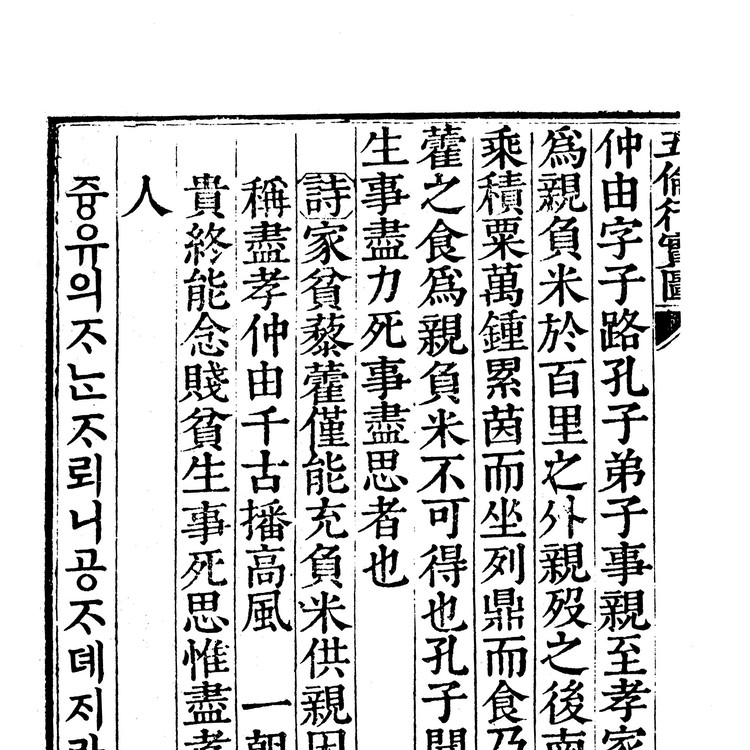 五倫行實圖
仲由字子路孔子弟子事親至孝家
爲親負米於百里之外親歿之後南
乘積粟萬鍾累茵而坐列鼎而食乃
藿之食爲親負米不可得也孔子聞
生事盡力死事盡思者也
詩家貧藜藿僅能充負米供親因
稱盡孝仲由千古播高風 一朝
貴終能念賤貧生事死思惟盡孝
人
즁유의ᄌᆞᄂᆞᆫᄌᆞ뢰니공ᄌᆞ뎨지라